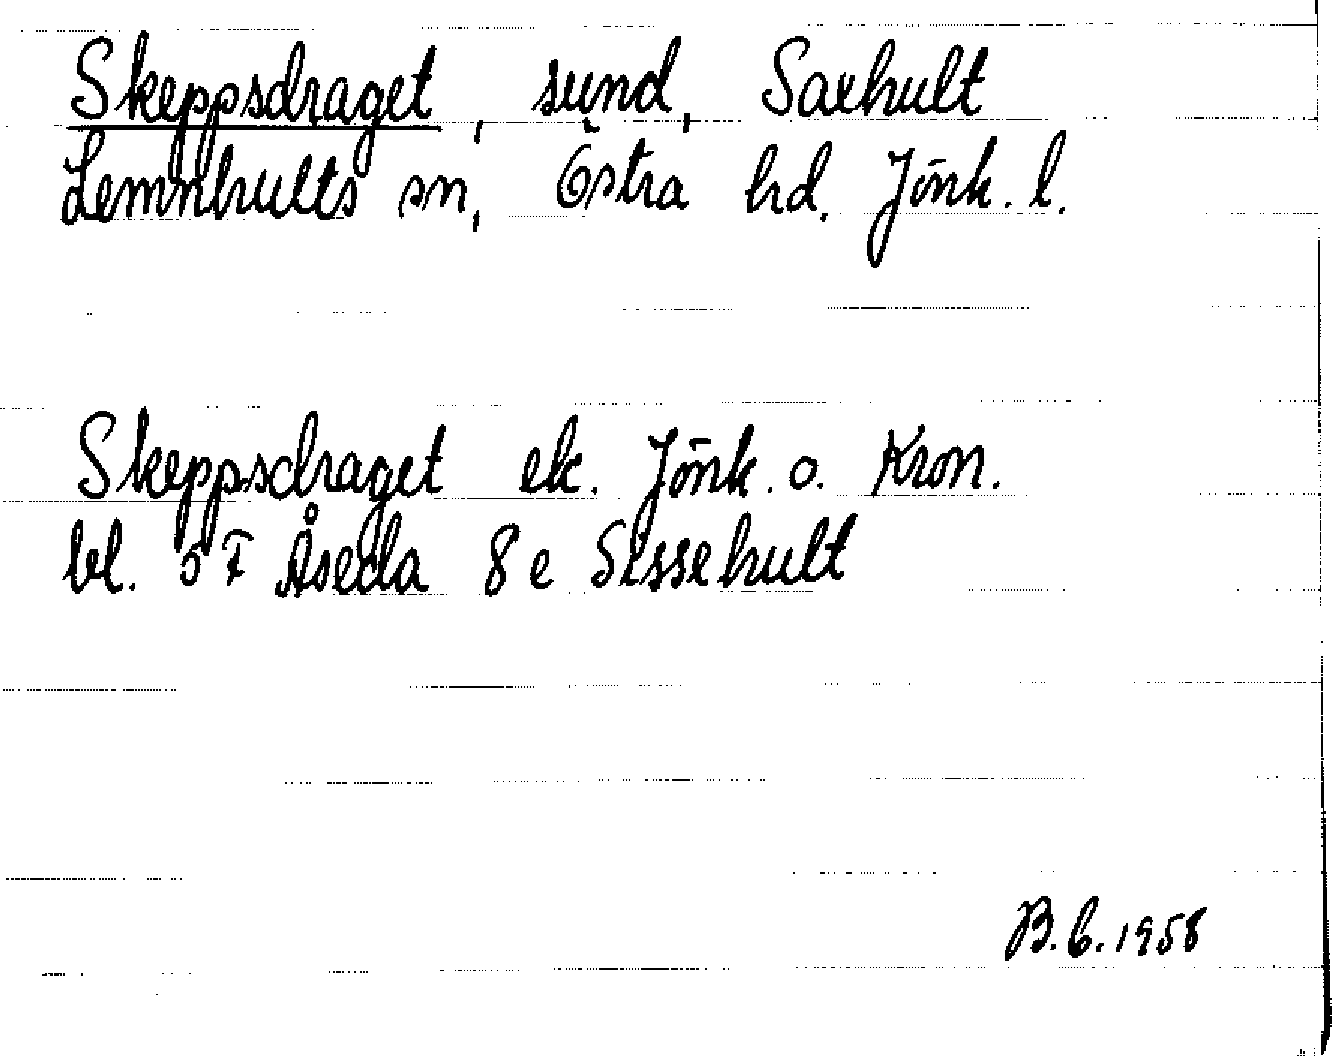 Skeppsdraget, sund, Saxhult
Lemnhults sn, Östra hd. Jönk. l.
Skeppsdraget ek. Jönk. o. Kron.
bl. 5 F Åseda 8 e Sissehult
B.G. 1958